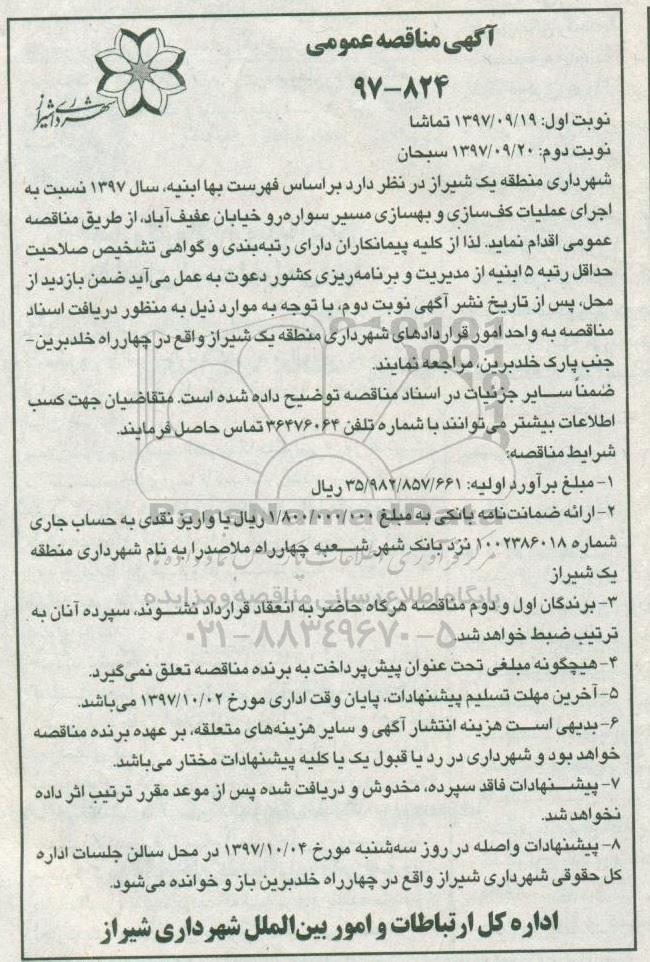 آگهی مناقصه عمومی
۹۷-۸۲۴
شهرداری شیراز
نوبت اول: ۱۳۹۷/۰۹/۱۹ تماشا
نوبت دوم: ۱۳۹۷/۰۹/۲۰ سبحان
شهرداری منطقه یک شیراز در نظر دارد براساس فهرست بها ابنیه، سال ۱۳۹۷ نسبت به
اجرای عملیات کف‌سازی و بهسازی مسیر سواره‌رو خیابان عفیف‌آباد، از طریق مناقصه
عمومی اقدام نماید. لذا از کلیه پیمانکاران دارای رتبه‌بندی و گواهی تشخیص صلاحیت
حداقل رتبه ۵ ابنیه از مدیریت و برنامه‌ریزی کشور دعوت به عمل می‌آید ضمن بازدید از
محل، پس از تاریخ نشر آگهی نوبت دوم، با توجه به موارد ذیل به منظور دریافت اسناد
مناقصه به واحد امور قراردادهای شهرداری منطقه یک شیراز واقع در چهارراه خلدبرین-
جنب پارک خلدبرین، مراجعه نمایند.
ضمناً سایر جزئیات در اسناد مناقصه توضیح داده شده است. متقاضیان جهت کسب
اطلاعات بیشتر می‌توانند با شماره تلفن ۳۶۴۷۶۰۶۴ تماس حاصل فرمایند.
شرایط مناقصه:
۱- مبلغ برآورد اولیه: ۳۵/۹۸۲/۸۵۷/۶۶۱ ریال
۲- ارائه ضمانت‌نامه بانکی به مبلغ ۱/۸۰۰/۰۰۰/۰۰۰ ریال یا واریز نقدی به حساب جاری
شماره ۱۰۰۲۳۸۶۰۱۸ نزد بانک شهر شعبه چهارراه ملاصدرا به نام شهرداری منطقه
یک شیراز
۳- برندگان اول و دوم مناقصه هرگاه حاضر به انعقاد قرارداد نشوند، سپرده آنان به
ترتیب ضبط خواهد شد.
۴- هیچگونه مبلغی تحت عنوان پیش‌پرداخت به برنده مناقصه تعلق نمی‌گیرد.
۵- آخرین مهلت تسلیم پیشنهادات، پایان وقت اداری مورخ ۱۳۹۷/۱۰/۰۲ می‌باشد.
۶- بدیهی است هزینه انتشار آگهی و سایر هزینه‌های متعلقه، بر عهده برنده مناقصه
خواهد بود و شهرداری در رد یا قبول یک یا کلیه پیشنهادات مختار می‌باشد.
۷- پیشنهادات فاقد سپرده، مخدوش و دریافت شده پس از موعد مقرر ترتیب اثر داده
نخواهد شد.
۸- پیشنهادات واصله در روز سه‌شنبه مورخ ۱۳۹۷/۱۰/۰۴ در محل سالن جلسات اداره
کل حقوقی شهرداری شیراز واقع در چهارراه خلدبرین باز و خوانده می‌شود.
اداره کل ارتباطات و امور بین‌الملل شهرداری شیراز
ParsNamadData
پایگاه اطلاع رسانی مناقصه و مزایده
۰۲۱-۸۸۳۴۹۶۷۰-۵